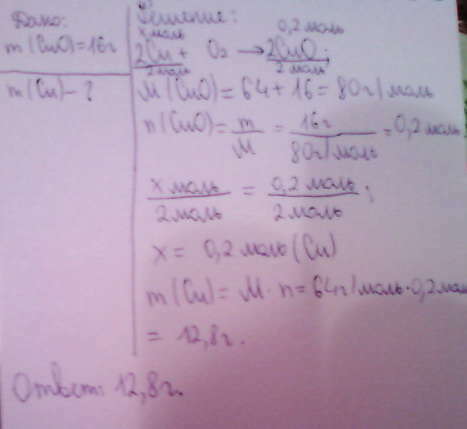 Дано:
m(CuO)=16г
m(Cu)-?
Решение:
x моль 0,2 моль
2Cu + O₂ → 2CuO;
2 моль 2 моль
M(CuO)= 64+16= 80г/моль
n(CuO)= m/M = 16г/80г/моль = 0,2 моль
x моль/2 моль = 0,2 моль/2 моль;
x = 0,2 моль (Cu)
m(Cu)= M·n=64г/моль·0,2 мол
= 12,8г.
Ответ: 12,8г.